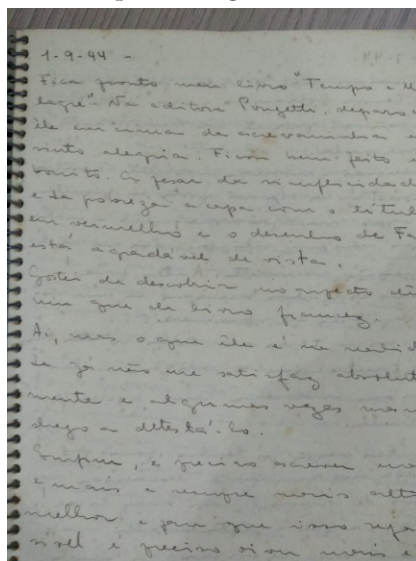 1-9-44 -
Fica pronto meu livro "Tempo e
lagre" Na editora Pongetti, deparo
êle em cima da escrevaninha
sinto alegria. Ficou bem feito
bonito. Apesar da simplicidad
e da pobreza a capa com o titul
em vermelho e o desenho de Fa
está agradavel de vista.
Gostei de descobrir no aspecto
um que de livro francez.
Ai, mas o que êle é na realid
de já não me satisfaz absolut
mente e algumas vezes mes
chego a detestá-lo.
Emfim, é preciso escrever
e mais e sempre mais
melhor e para que isso seja
sivel é preciso viver mais e